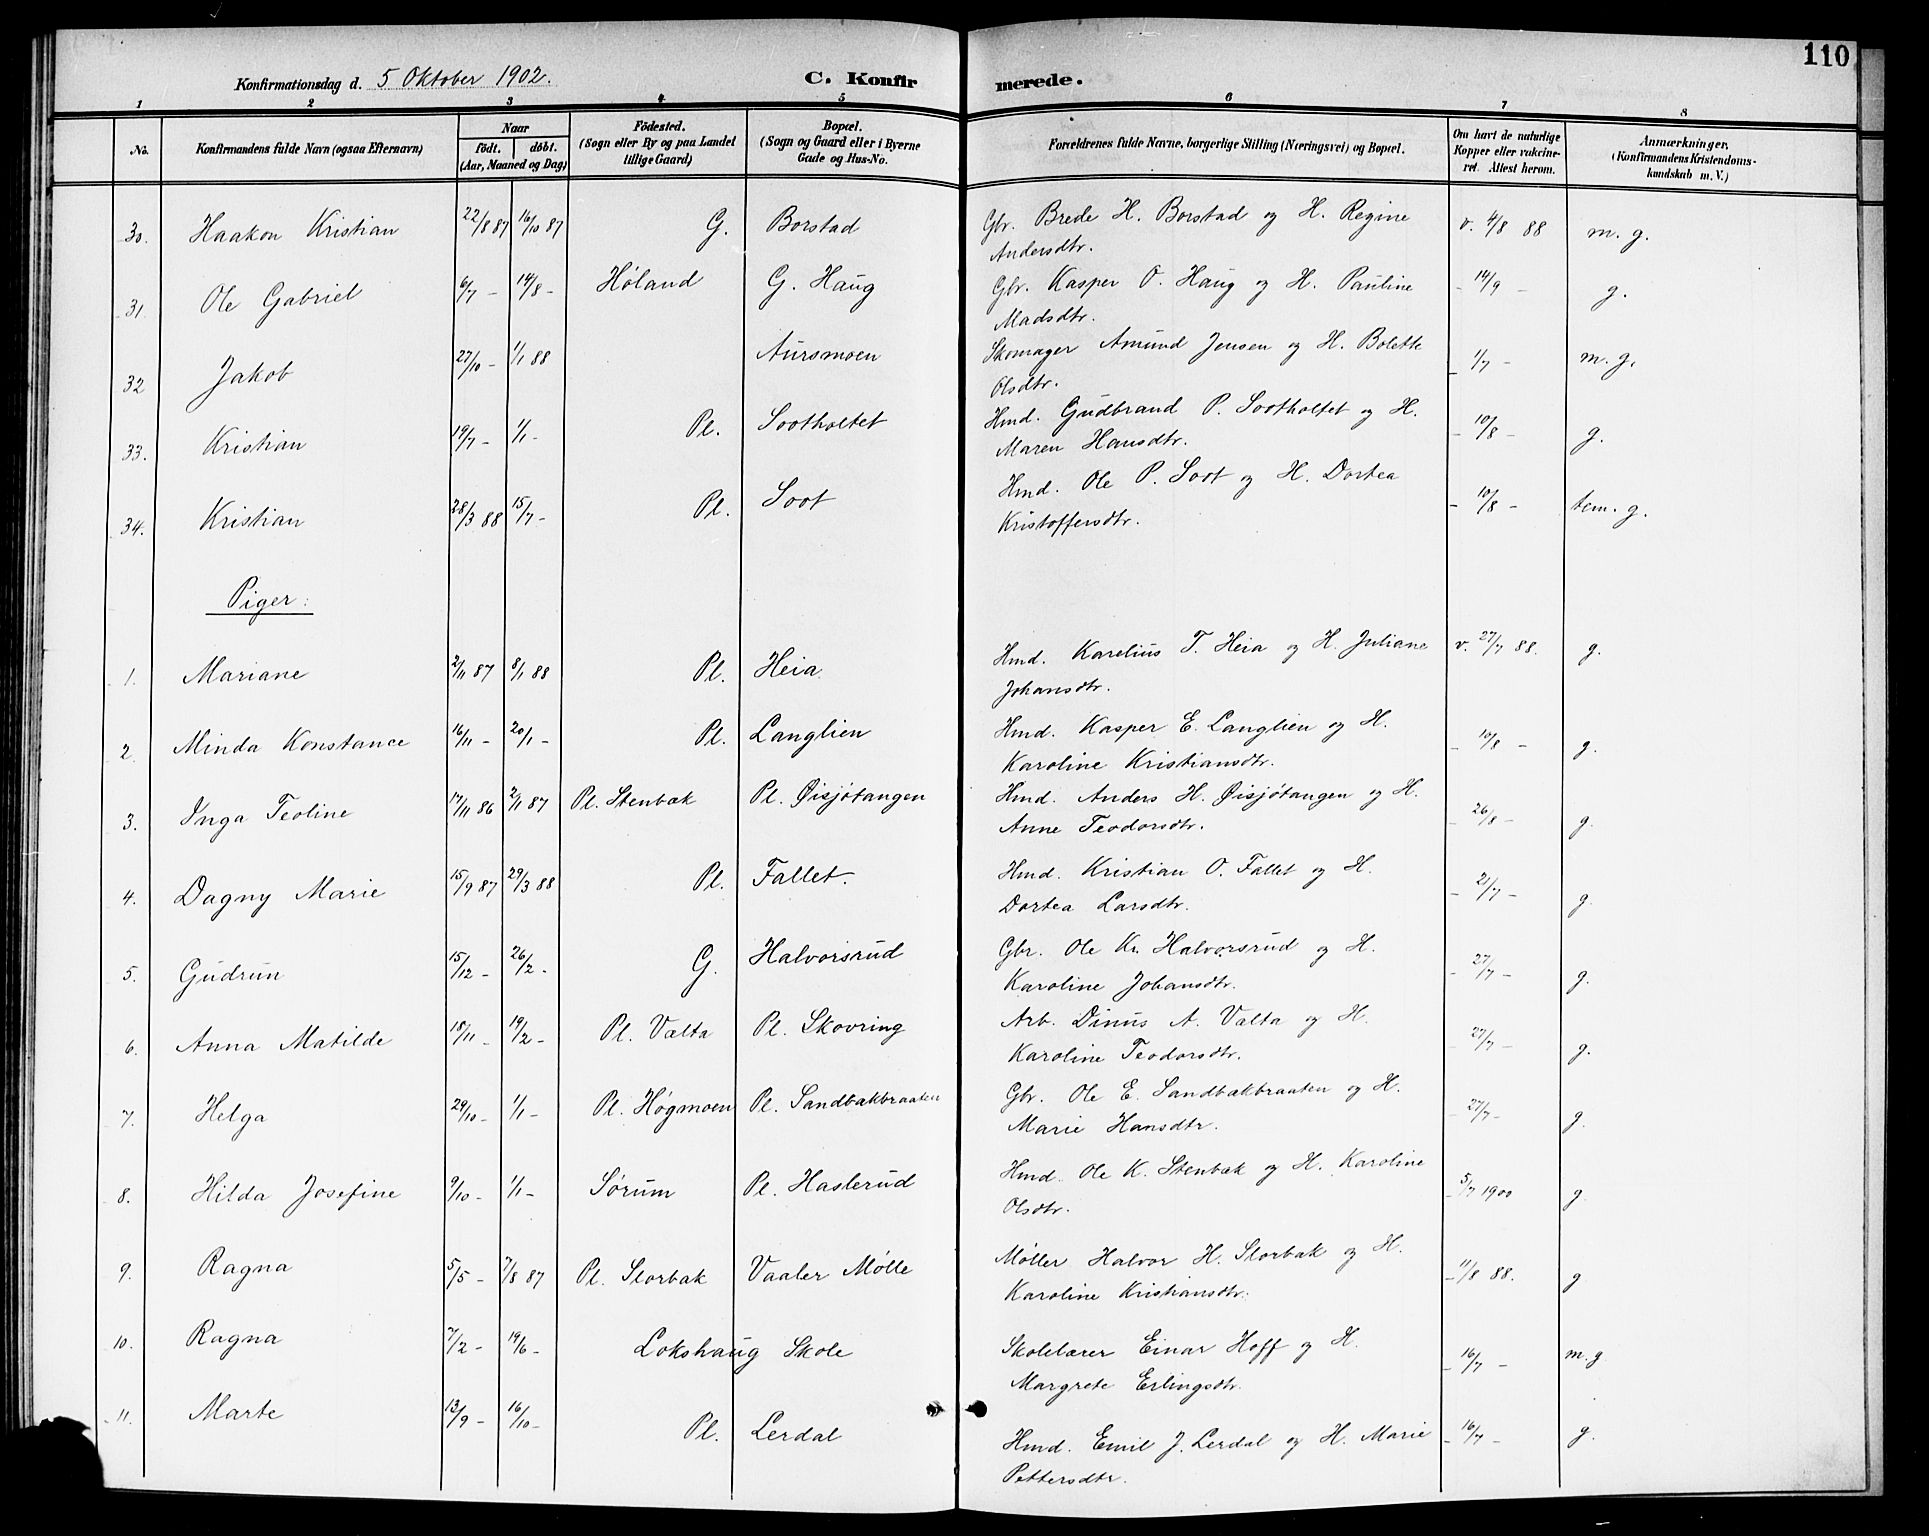 110
Konfirmationsdag d. 5 Oktober 1902. C. Konfir merede.
1 2 3 4 5 6 7 8
No. Konfirmandens fulde Navn (ogsaa Efternavn) Naar födt. döbt. (Aar, Maaned og Dag) Födested. (Sogn eller By og paa Landet tillige Gaard) Bopæl. (Sogn og Gaard eller i Byerne Gade og Hus-No. Forældrenes fulde Navne, borgerlige Stilling (Næringsvei) og Bopæl. Om havt de naturlige Kopper eller vakcineret. Attest herom. Anmærkninger. (Konfirmandens Kristendomskundskab m. V.)
30. Haakon Kristian 22/8 87 16/10 87 G. Borstad Gbr. Brede H. Borstad og H. Regine v. 4/8 88 m. g.
Andersdtr.
31. Ole Gabriel 6/7 - 14/8 - Høland G. Haug Gbr. Kasper O. Haug og H. Pauline - 14/9 - g.
Madsdtr.
32 Jakob 27/10 - 1/1 88 Aursmoen Skomager Amund Jensen og H. Bolette - 1/7 - m. g.
Olsdtr.
33. Kristian 19/7 - 1/1 - Pl. Sootholtet Hmd. Gudbrand P. Sootholtet og H. - 10/8 - g.
Maren Hansdtr.
34. Kristian 28/3 88 15/7 - Pl. Soot Hmd. Ole P. Soot og H. Dortea - 10/8 - tem. g.
Kristoffersdtr.
Piger:
1. Mariane 2/11 87 8/1 88 Pl. Heia Hmd. Karelius T. Heia og H. Juliane v. 27/7 88. g.
Johansdtr.
2. Minda Konstance 16/11 - 20/1 - Pl. Langlien Hmd. Kasper E. Langlien og H. - 10/8 - g.
Karoline Kristiansdtr.
3. Inga Teoline 17/11 86 2/1 87 Pl. Stenbæk Pl. Øisjøtangen Hmd. Anders H. Øisjøtangen og H. - 26/8 - g.
Anne Teodorsdtr.
4. Dagny Marie 15/9 87 29/3 88 Pl. Fallet. Hmd. Kristian O. Fallet og H. - 21/7 - g.
Dortea Larsdtr.
5. Gudrun 15/12 - 26/2 - G. Halvorsrud Gbr. Ole Kr. Halvorsrud og H. - 27/7 - g.
Karoline Johansdtr.
6. Anna Matilde 18/11 - 19/2 - Pl. Vælta Pl. Skovring Arb. Dinus A. Vælta og H. - 27/7 - g.
Karoline Teodorsdtr.
7. Helga 29/10 - 1/1 - Pl. Høgmoen Pl. Sandbækbraaten Gbr. Ole E. Sandbækbraaten og H. - 27/7 - g.
Marie Hansdtr.
8. Hilda Josefine 9/10 - 1/1 - Sørum Pl. Haslerud Hmd. Ole K. Stenbæk og H. Karoline - 5/7 1900 g.
Olsdtr.
9. Ragna 5/5 - 7/8 87 Pl. Storbæk Vaaler Mølle Møller Halvor H. Storbæk og H. - 11/8 88. g
Karoline Kristiansdtr.
10. Ragna 7/2 - 19/6 - Lokshaug Skole Skolelærer Einar Hoff og H. - 16/7 - m. g
Margrete Erlingsdtr.
11. Marte 13/9 - 16/10 - Pl. Lerdal Hmd. Emil J. Lerdal og H. Marie - 16/7 - g.
Pettersdtr.